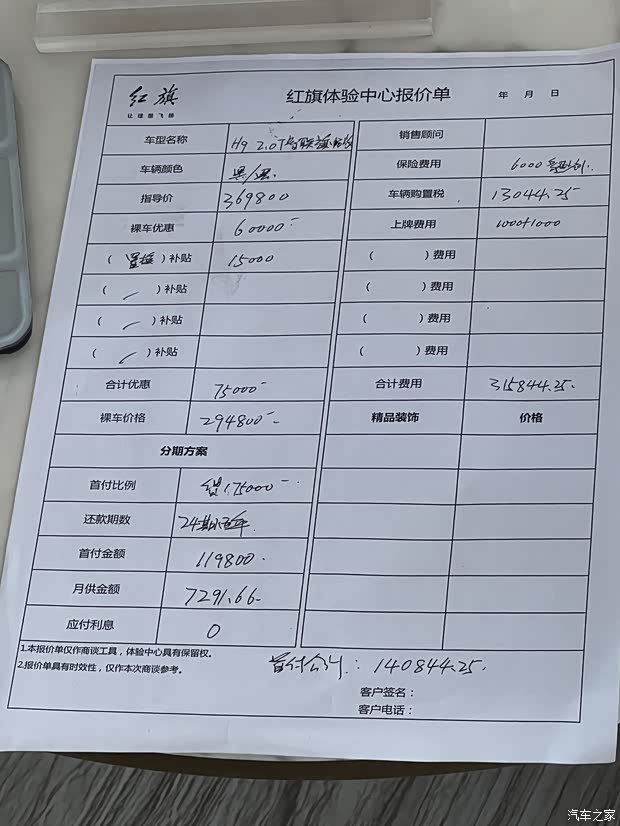 红旗
让理想飞扬
红旗体验中心报价单 年 月 日
车型名称 H9 2.0T 销售顾问
车辆颜色 黑/黑 保险费用 6000
指导价 369800 车辆购置税 13044.25
裸车优惠 60000 上牌费用 1000+1000
（置换）补贴 15000 （ ）费用
（ ）补贴 （ ）费用
（ ）补贴 （ ）费用
（ ）补贴 （ ）费用
合计优惠 75000 合计费用 315844.25
裸车价格 294800 精品装饰 价格
分期方案
首付比例 贷175000
还款期数 24期
首付金额 119800
月供金额 7291.66
应付利息 0
1.本报价单仅作商谈工具，体验中心具有保留权。
2.报价单具有时效性，仅作本次商谈参考。
首付合计：140844.25
客户签名：
客户电话：
汽车之家